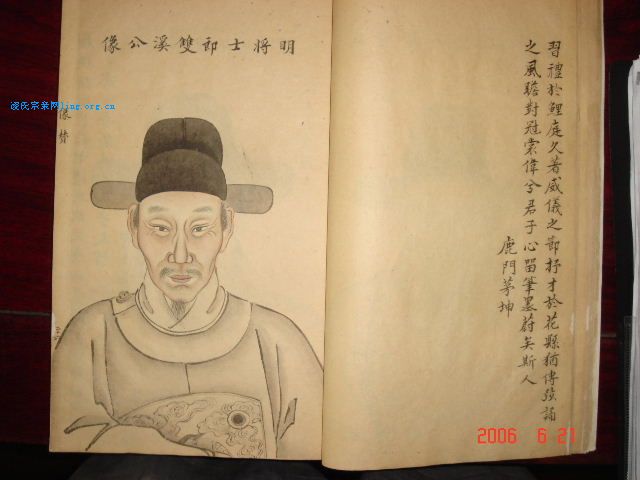 明將士郎雙溪公像
凌氏宗亲网ling.org.cn
像贊
習禮於鯉庭久著威儀之節抒才於花縣猶傳弦誦
之風瞻對冠裳偉兮君子心畱筆墨蔚矣斯人
鹿門茅坤
2006 6 21